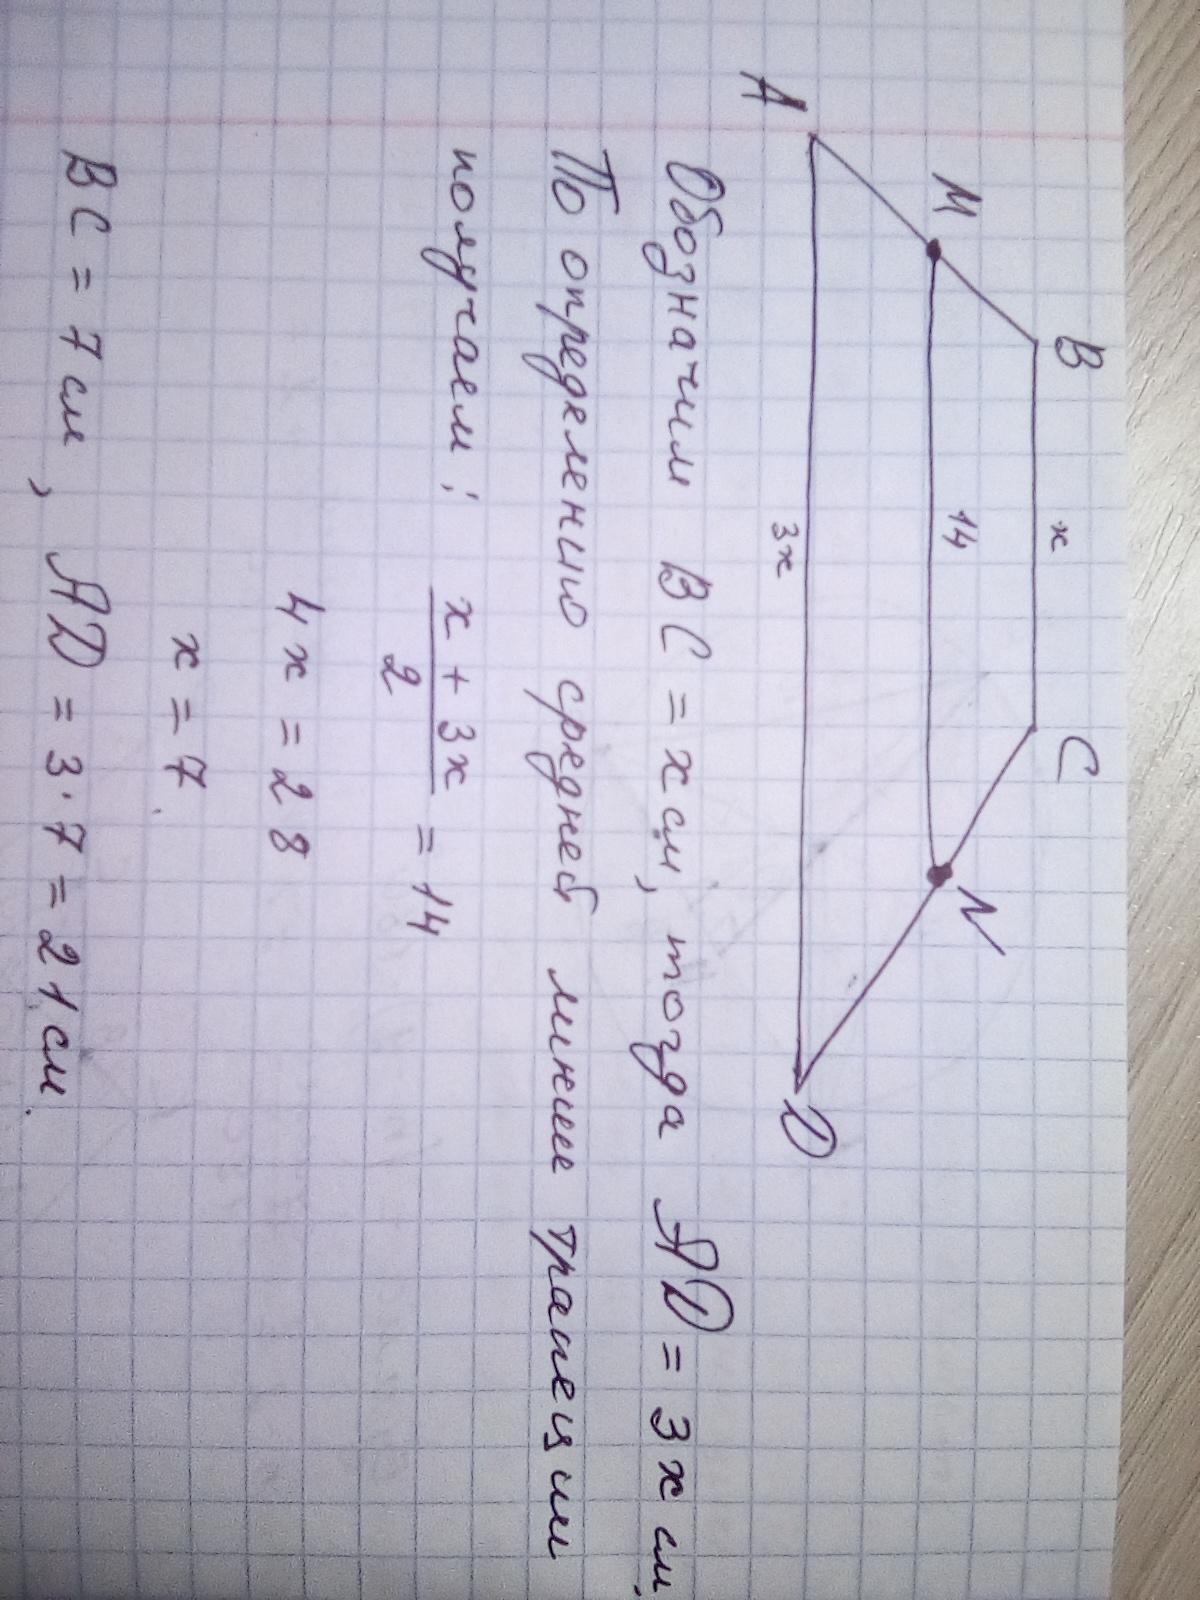 B x C
M 14 N
A 3x D
Обозначим BC = x см, тогда AD = 3x см.
По определению средней линии трапеции
получаем: x + 3x / 2 = 14
4x = 28
x = 7.
BC = 7 см, AD = 3·7 = 21 см.